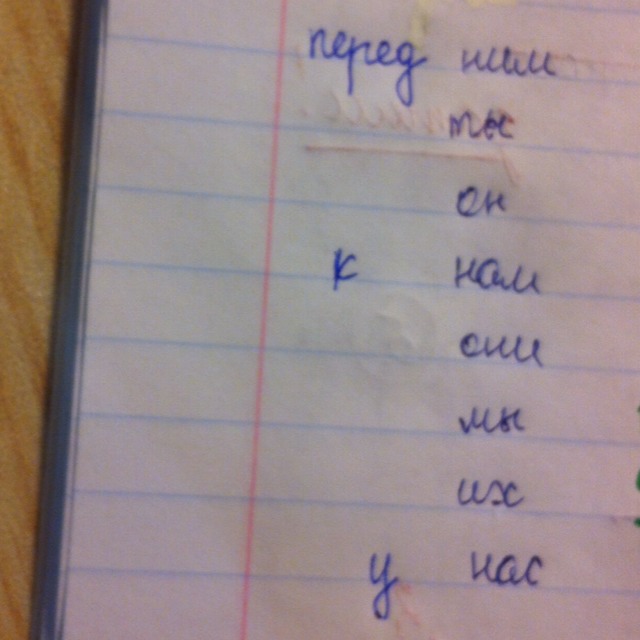 перед ним
ты
он
к нам
они
мы
их
у нас